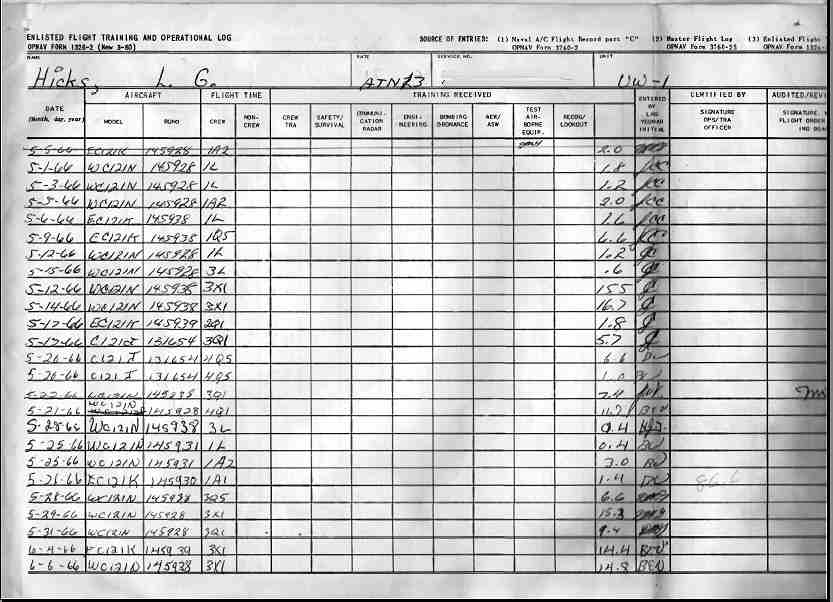 ENLISTED FLIGHT TRAINING AND OPERATIONAL LOG SOURCE OF ENTRIES: (1) Naval A/C Flight Record part "C" (2) Master Flight Log (3) Enlisted Flight
OPNAV FORM 1326-2 (New 3-60) OPNAV Form 3760-2 OPNAV Form 3760-25 OPNAV Form 1326-
NAME RATE SERVICE NO. UNIT
Hicks, L. G. ATN3 VW-1
DATE (Month, day, year) AIRCRAFT FLIGHT TIME TRAINING RECEIVED ENTERED BY LOG YEOMAN INITIAL CERTIFIED BY AUDITED/REV
MODEL BUNO CREW NON-CREW CREW TRA SAFETY/SURVIVAL COMMUNI-CATION RADAR ENGI-NEERING BOMBING ORDNANCE AEW/ASW TEST AIR-BORNE EQUIP. RECOG/LOOKOUT SIGNATURE OPS/TRA OFFICER SIGNATURE, FLIGHT ORDER
5-5-66 EC121K 145928 1A2 2.0
5-1-66 WC121N 145928 1L 1.8
5-3-66 WC121N 145928 1L 1.2
5-5-66 WC121N 145928 1A2 2.0
5-6-66 EC121K 145938 1L 1.6
5-9-66 EC121K 145938 1Q5 6.6
5-12-66 WC121N 145928 1L 1.2
5-15-66 WC121N 145928 3L .6
5-12-66 WC121N 145938 3X1 15.5
5-14-66 WC121N 145938 3X1 16.7
5-17-66 EC121K 145939 2Q1 1.8
5-17-66 C121J 131654 3Q1 5.7
5-20-66 C121J 131654 4Q5 6.6
5-20-66 C121J 131654 4Q5 1.0
5-22-66 3Q1 7.4
5-21-66 WC121N 145928 4Q1 BEN
5-28-66 WC121N 145938 3L 0.4
5-25-66 WC121N 145931 1L 0.4 BW
5-25-66 WC121N 145931 1A2 3.0 BW
5-26-66 EC121K 145930 1A1 1.4 86.6
5-28-66 WC121N 145928 3Q5 6.6
5-29-66 WC121N 145928 3X1 15.3
5-31-66 WC121N 145928 3Q1
6-4-66 EC121K 145939 3X1 14.4 BEN
6-6-66 WC121N 145928 3X1 14.8 BEN